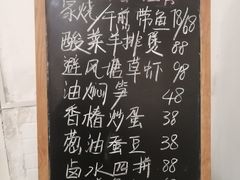 家烧/干煎带鱼 138/68
酸菜牛排煲 88
避风塘草虾 98
油焖笋 48
香椿炒蛋 38
葱油蚕豆 38
卤水四拼 88